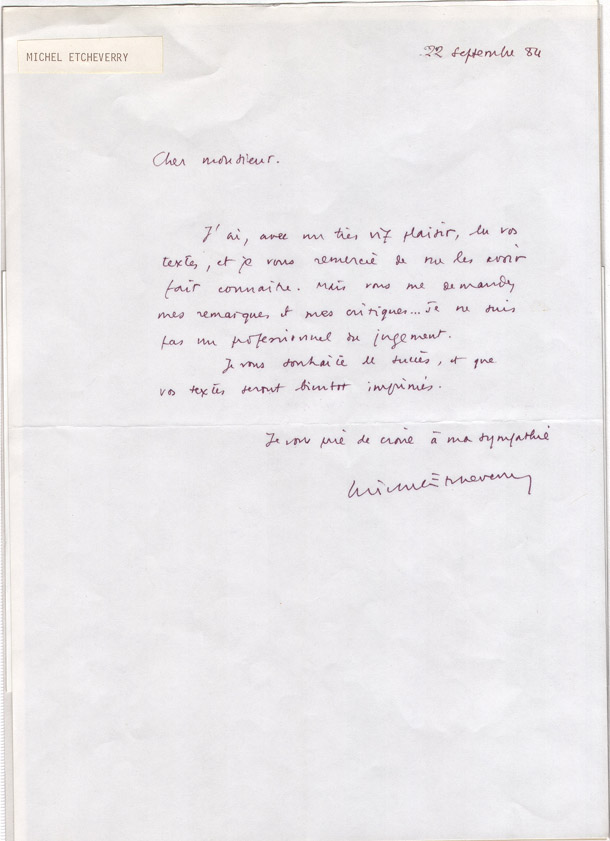 MICHEL ETCHEVERRY
22 septembre 84
Cher monsieur.
J'ai, avec un très vif plaisir, lu vos
textes, et je vous remercie de me les avoir
fait connaître. Mais vous me demandez
mes remarques et mes critiques... Je ne suis
pas un professionnel du jugement.
Je vous souhaite le succès, et que
vos textes seront bientôt imprimés.
Je vous prie de croire à ma sympathie
Michel Etcheverry